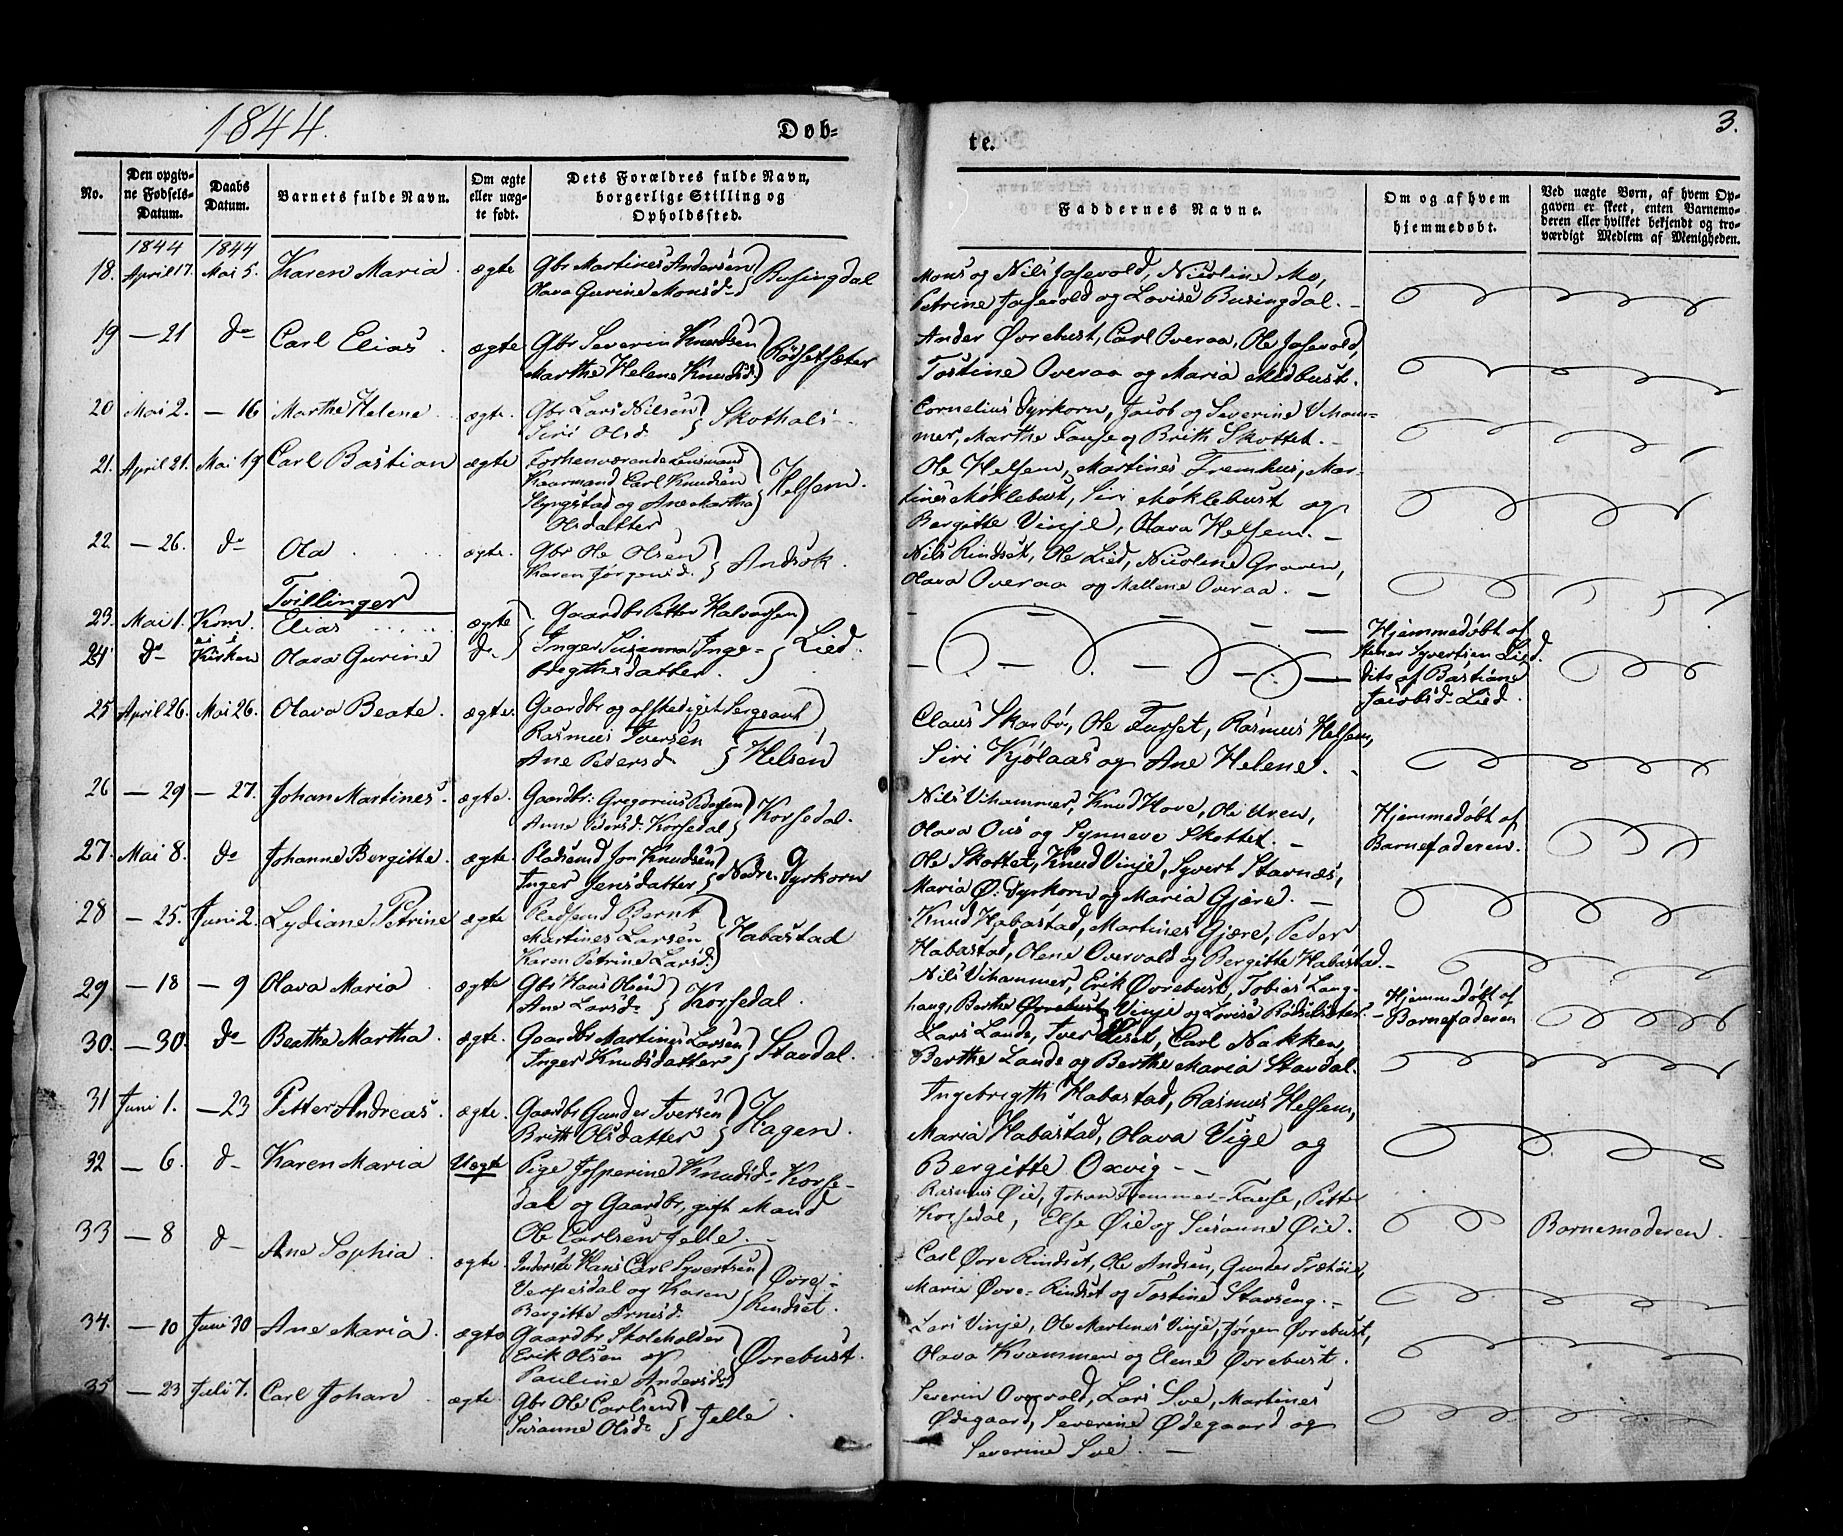 1844.
Døb-
te.
3.
No.
Den opgiv-
ne Fødsels-
Datum.
Daabs
Datum.
Barnets fulde Navn.
Om ægte
eller uæg-
te født.
Dets Forældres fulde Navn,
borgerlige Stilling og
Opholdssted.
Faddernes Navne.
Om og af hvem
hjemmedøbt.
Ved uægte Børn, af hvem Op-
gaven er skeet, enten Barnemo-
deren eller hvilket bekjendt og tro-
værdigt Medlem af Menigheden.
1844 1844
18. April 17. Mai 5. Karen Maria ægte Gbr Martines Andersen
Olava Gurine Monsd. Busingdal
Mons og Nils Jofevold, Nicoline Mo,
Petrine Jofevold og Lovise Busingdal. -
19 - 21 do Carl Elias ægte Gbr Severin Knudsen
Marthe Helene Knudsd. Rødsetsæter
Ander Øvrebust, Carl Overaa, Ole Jofevold,
Tostine Overaa og Maria Midbust.
20 Mai 2. - 16 Marthe Helene ægte. Gbr Lars Nilsen
Siri Olsd. Skothals
Cornelius Dyrkorn, Jacob og Severine Viham-
mer, Marthe Fause og Brith Skottet. -
21. April 21. Mai 19 Carl Bastian ægte Forhenværende Lensmand
Kaarmand Carl Knudsen
Slyngstad og Ane Martha
Olsdatter Helsem.
Ole Helsem, Martines Fremhus, Mar-
tines Møklebust, Siri Møklebust og
Bergitte Vinje, Olava Helsem. -
22 - 26. do Ola ægte. Gbr Ole Olsen
Karen Jørgensd. Andsok.
Nils Rindset, Ole Lied, Nicoline Graven,
Olava Overaa og Mallene Overaa. -
Tvillinger
23. Mai 1. Kom. Elias ægte Gaardbr Petter Halvorsen
24 do i Kirken Olava Gurine do Inger Susanna Inge-
brigthsdatter. Lied.
Hjemmedøbt af
Stener Syvertsen Lied.
dito af Bastiane
Jacobsd. Lied.
25 April 26. Mai 26. Olava Beate. ægte. Gaardbr og afskediget Sergeant
Rasmus Iversen
Ane Pedersd. Helsen
Claus Skarbø, Ole Furset, Rasmus Helsem,
Siri Kjølaas og Ane Helene.
26 - 29 - 27. Johan Martines. ægte. Gaardbr: Gregorius Pedersen
Anne Pedersd. Korsedal Korsedal.
Nils Vihammer, Knud Hove, Ole Uren,
Olava Ous og Synneve Skottet. -
Hjemmedøbt af
Barnefaderen.
27. Mai 8. do Johanne Bergitte. ægte. Pladsmd Jon Knudsen
Inger Jensdatter Nedre Dyrkorn
Ole Skottet, Knud Vinje, Syvert Stavnæs,
Maria Ø: Dyrkorn og Maria Gjære. -
28 - 25. Juni 2. Lydiane Petrine ægte Pladsmd Bernt
Martines Larsen
Karen Petrine Larsd. Habostad
Knud Habostad, Martines Gjære, Peder
Habostad, Olene Overvold og Bergitte Habostad. -
29 - 18 - 9 Olava Maria ægte Gbr Hans Olsen
Ane Larsd. Korsedal.
Nils Vihammer, Erik Øvrebust, Tobias Lang-
haug, Berthe Øvrebust, Vinje og Lovise Rødsetsæter.
Hjemmedøbt af
Barnefaderen
30. - 30. do Beathe Martha. ægte. Gaardbr Martines Larsen
Inger Knudsdatter Stavdal.
Lars Lande, Iver Eliset, Carl Nakken,
Berthe Lande og Berthe Maria Stavdal.
31 Juni 1. - 23 Petter Andreas. ægte. Gaardbr Gunder Iversen
Brith Olsdatter Hagen.
Ingebrigth Habostad, Rasmus Helsem,
Maria Habostad, Olava Vige og
Bergitte Oxvig -
32 - 6. d- Karen Maria Uægte Pige Jesperine Knudsd. Korse-
dal og Gaardbr, gift Mand
Ole Carlsen Jelle. -
Rasmus Øie, Johan Tømmer-Fause, Petter
Korsedal, Else Øie og Susanne Øie.
Barnemoderen.
33 - 8 d- Ane Sophia. ægte. Inderste Hans Carl Syvertsen
Verpesdal og Karen
Bergitte Arnesd. Øvre-
Rindset.
Carl Øvre Rindset, Ole Andsen, Gunder Trætøie,
Maria Øvre-Rindset og Tostine Stavseng. -
34. - 10 Juni 30 Ane Maria. ægte Gaardbr Skoleholder
Erik Olsen og
Pauline Andersd. Øvrebust.
Lars Vinje, Ole Martines Vinje, Jørgen Øvrebust,
Olava Kvammen og Elene Øvrebust.
35 - 23 Juli 7. Carl Johan ægte. Gbr Ole Carlsen
Susanne Olsd. Jelle.
Severin Overvold, Lars Sve, Martines
Ødegaard, Severine Ødegaard og
Severine Sve. -